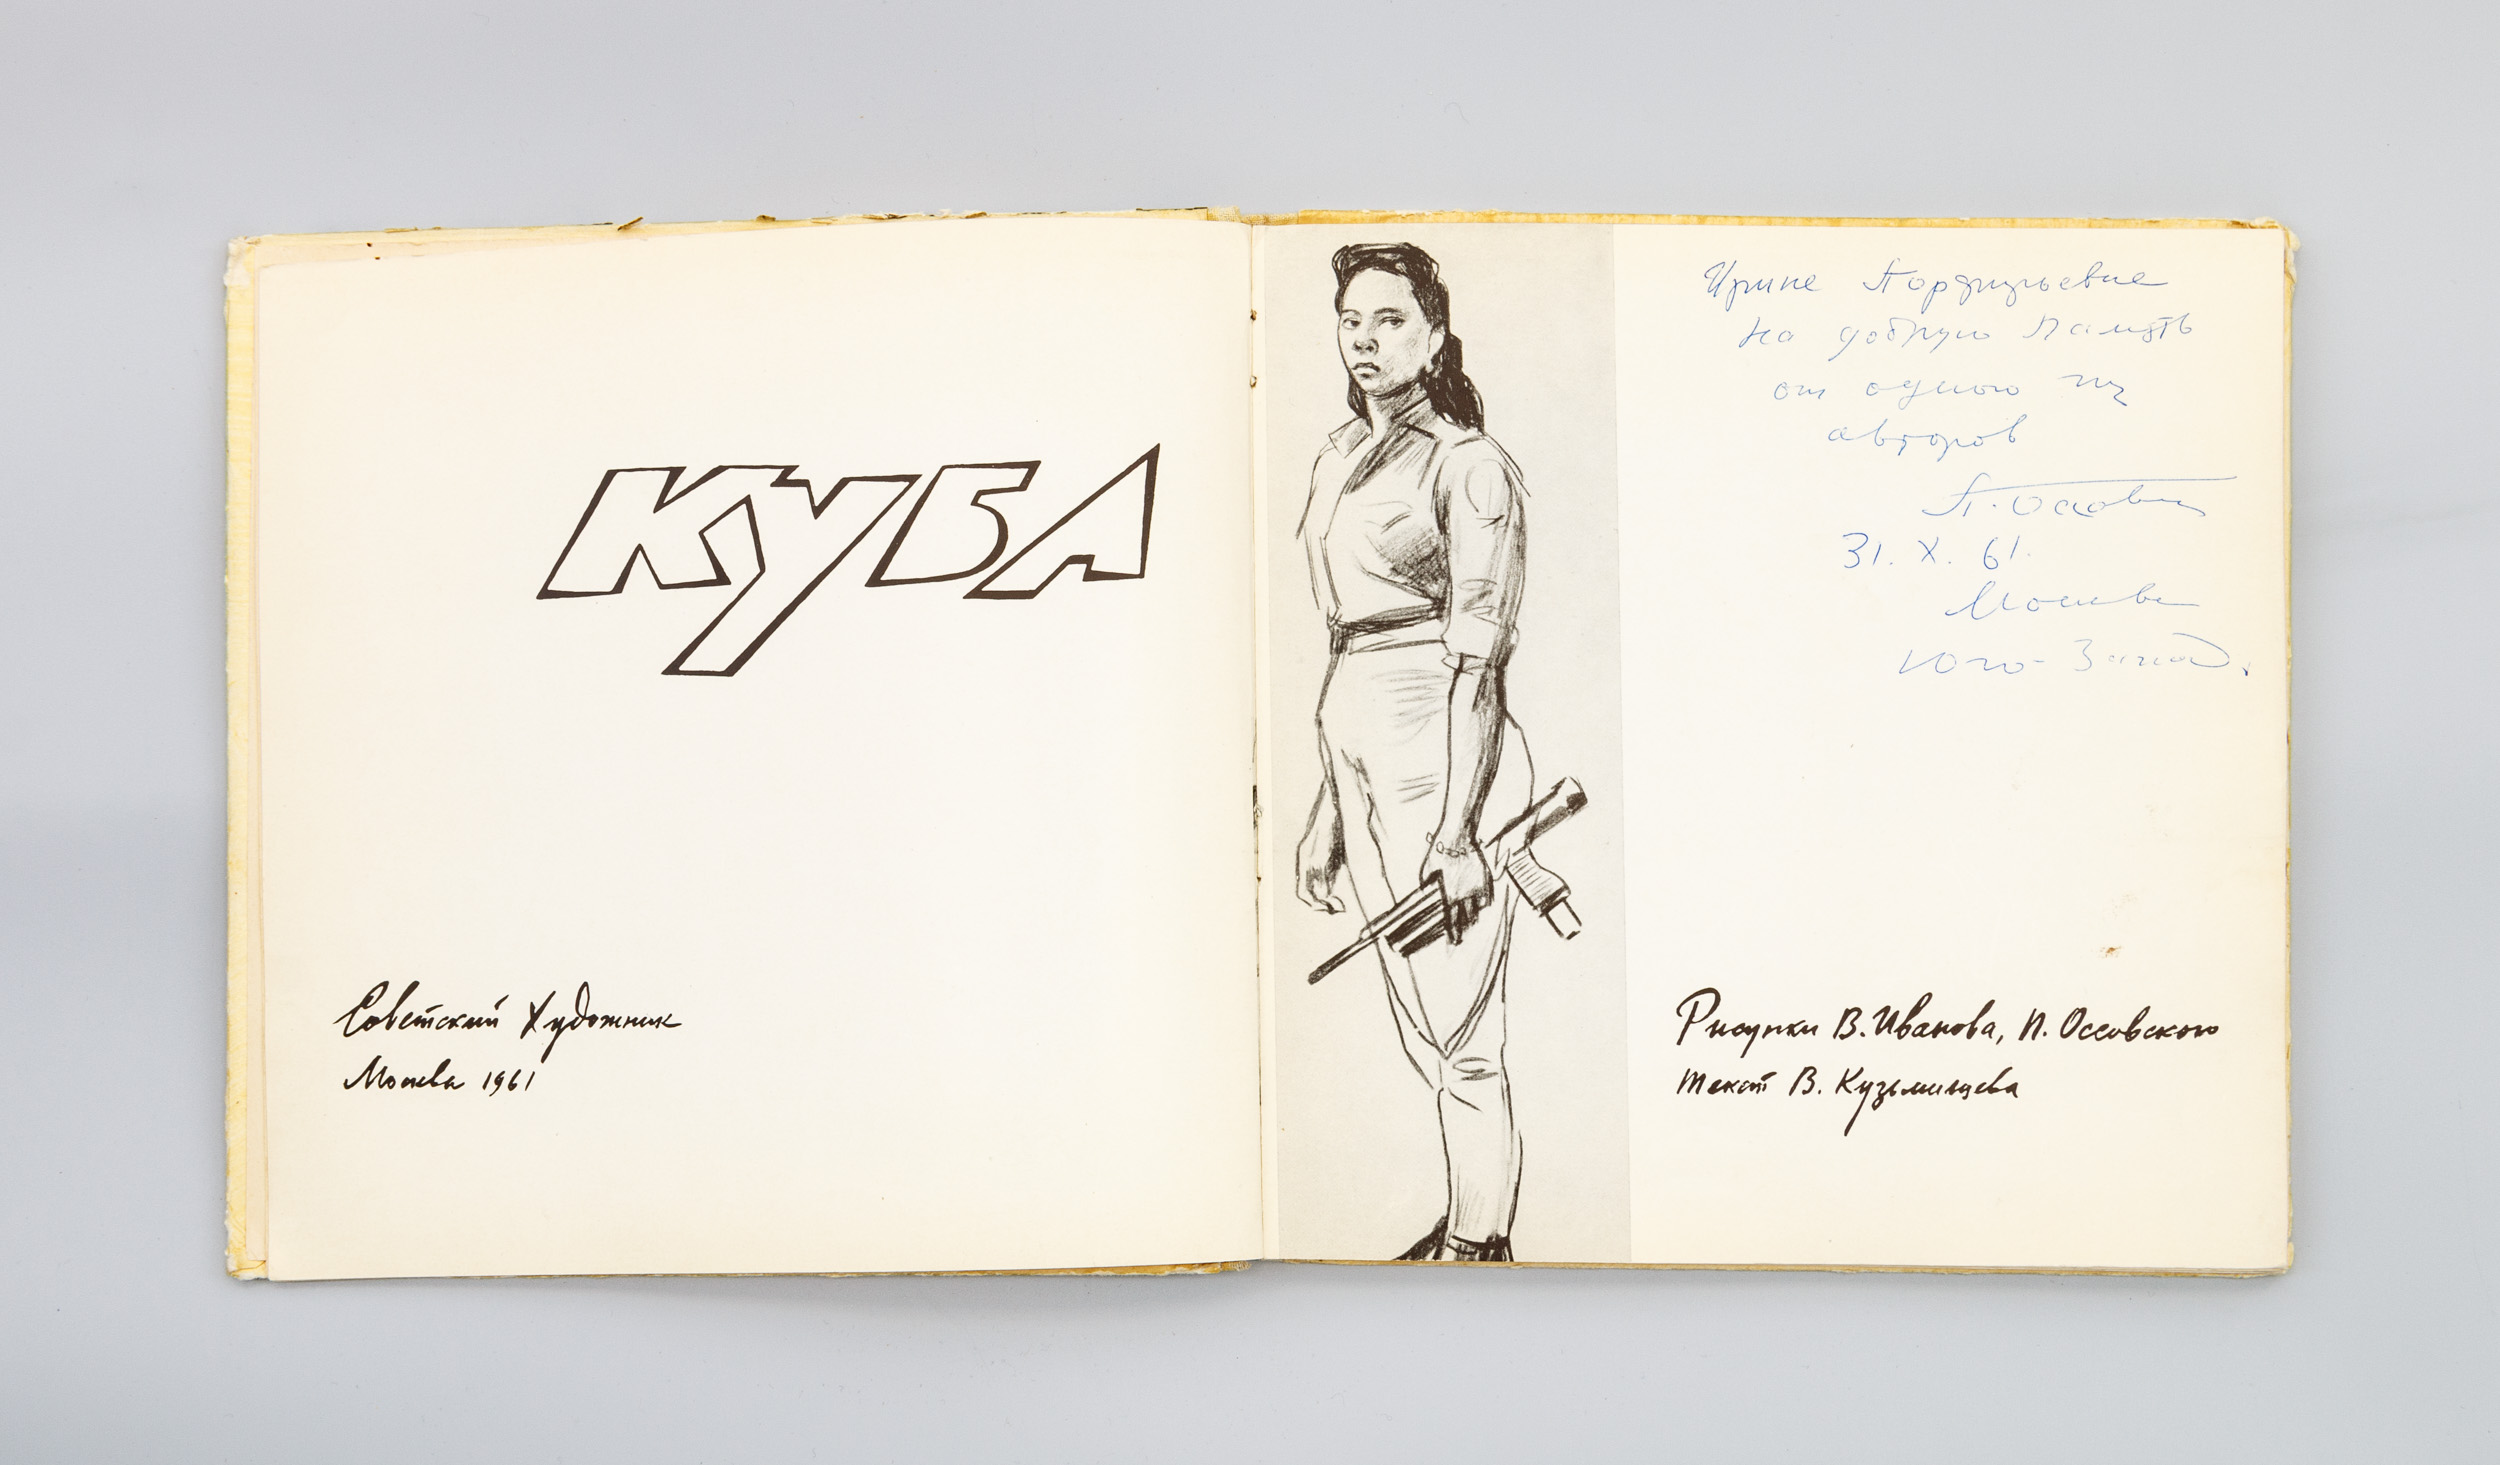 КУБА
Советский Художник
Москва 1961
Ирине Порфирьевне
на добрую память
от одного из
авторов
П. Оссовский
31. X. 61.
Москва
Юго-Запад.
Рисунки В. Иванова, П. Оссовского
текст В. Кузьмищева